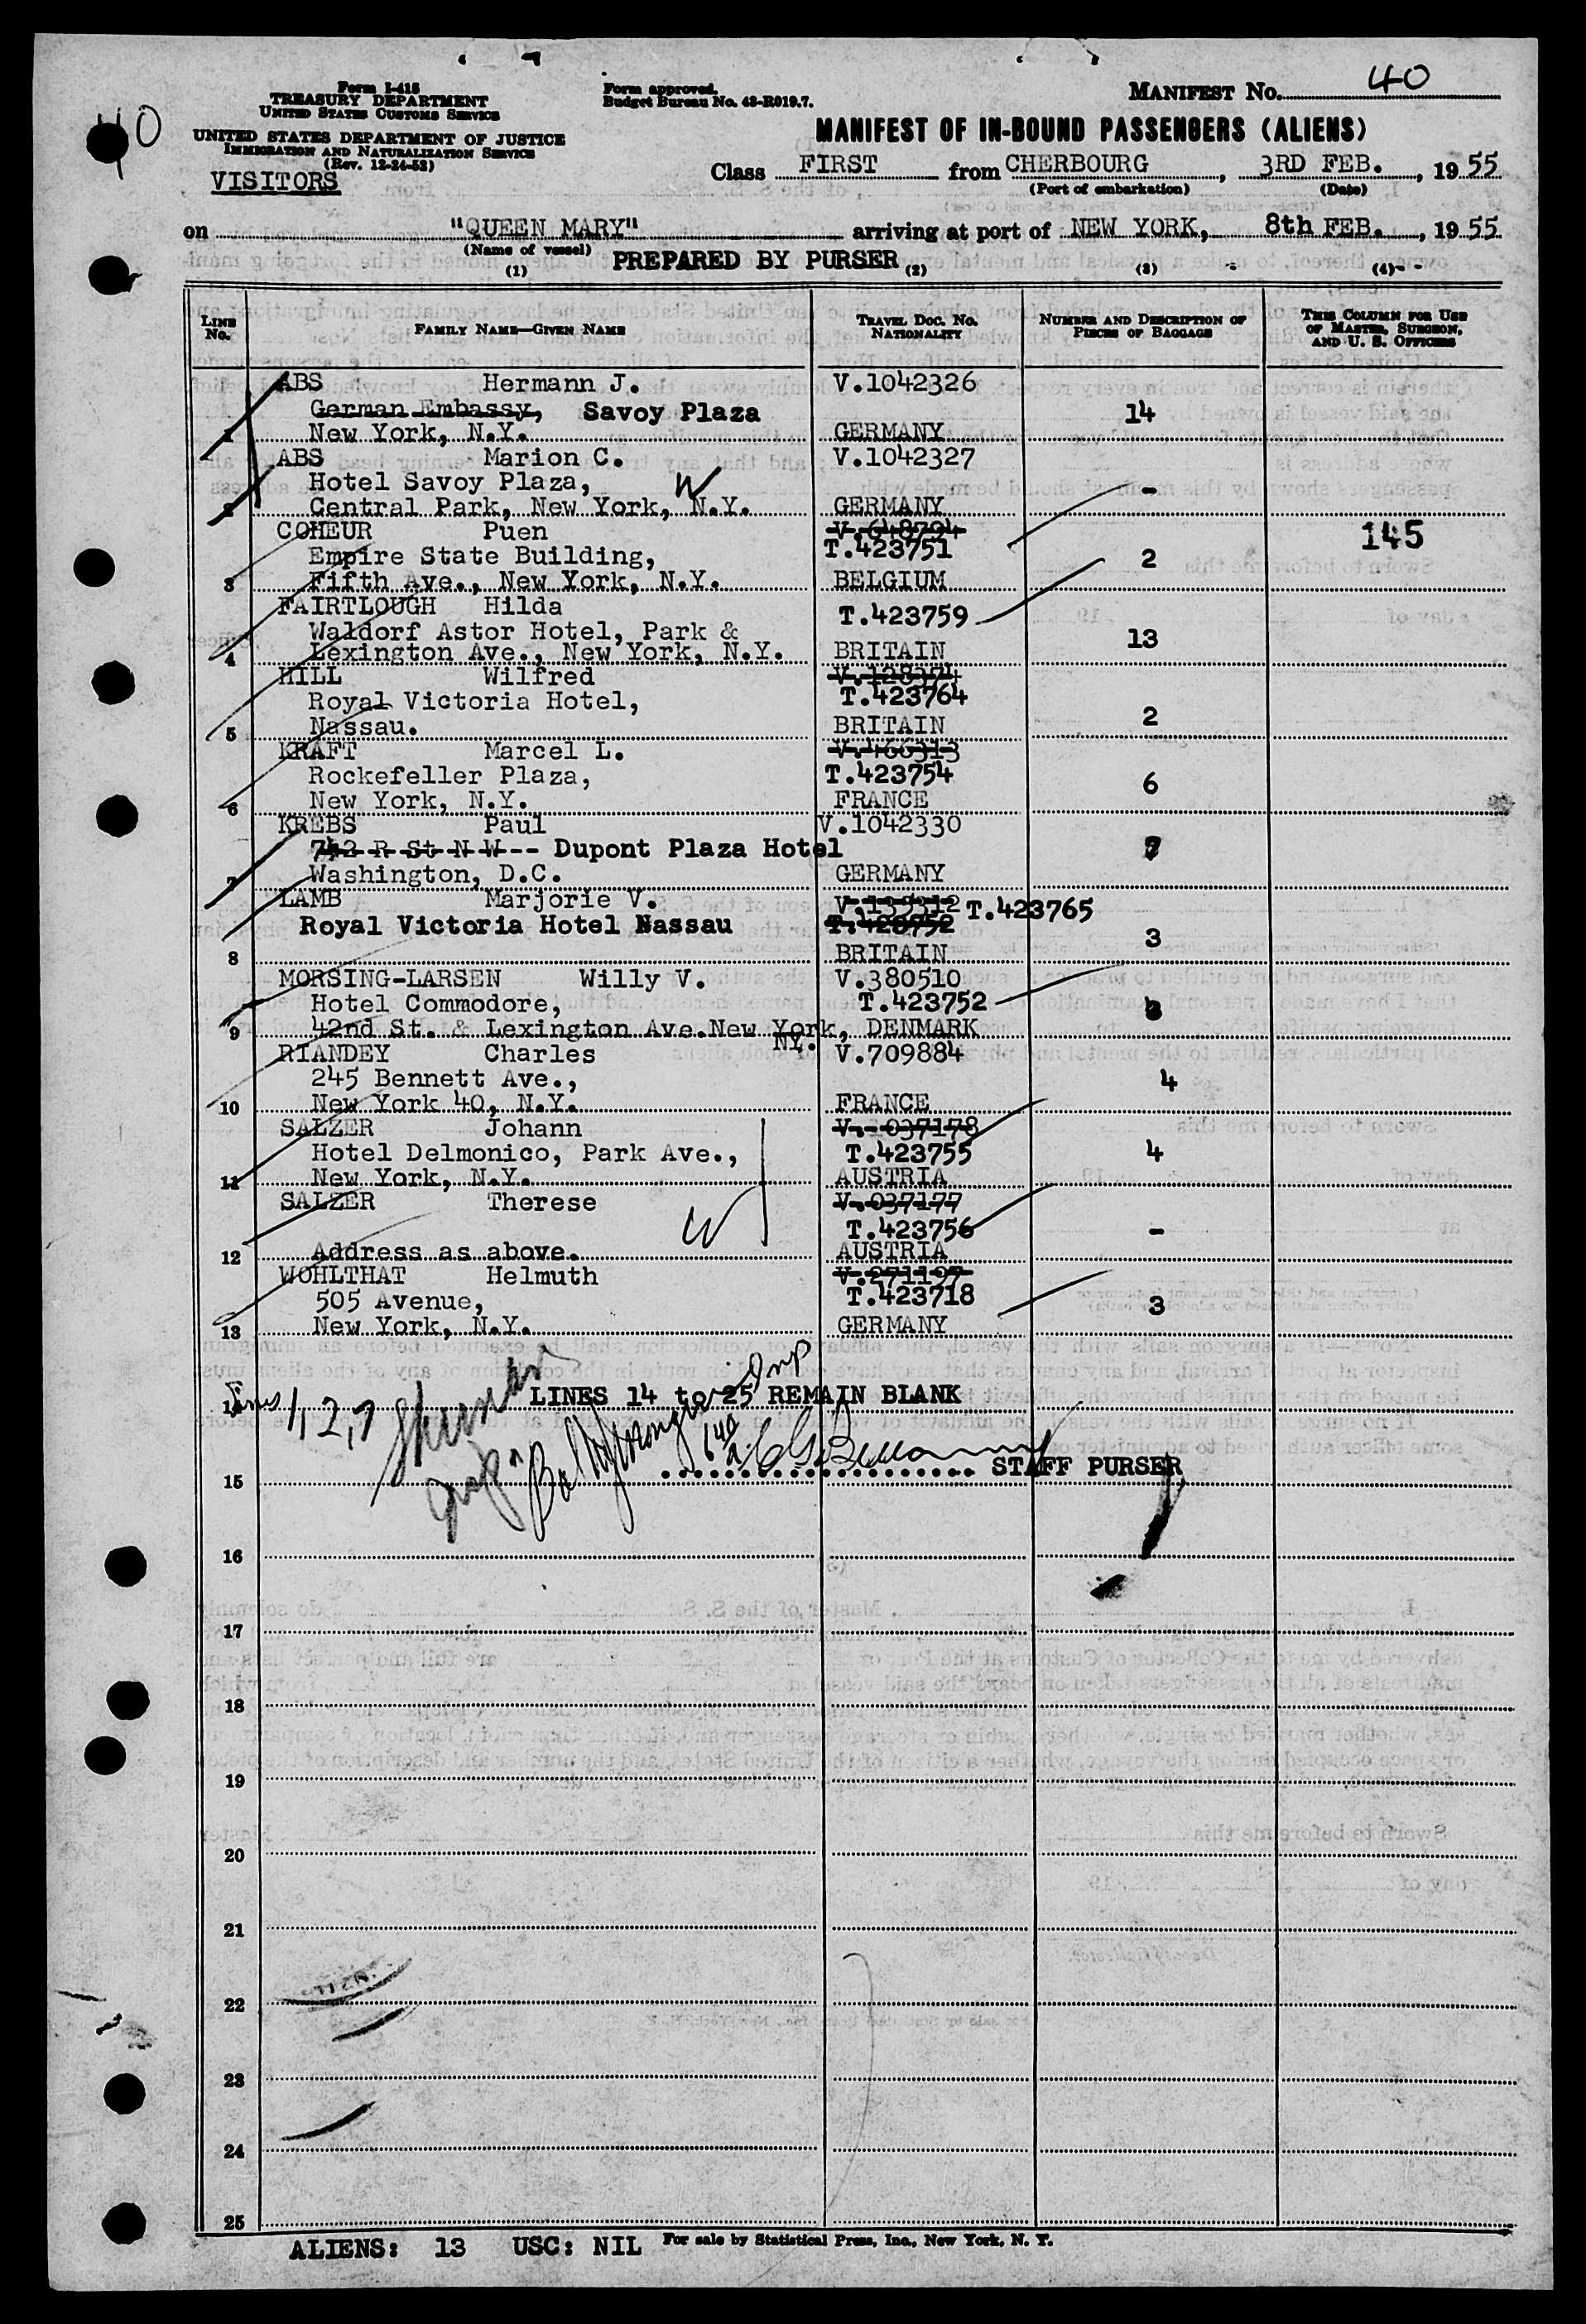 40
Form I-418
TREASURY DEPARTMENT
UNITED STATES CUSTOMS SERVICE
UNITED STATES DEPARTMENT OF JUSTICE
IMMIGRATION AND NATURALIZATION SERVICE
(Rev. 12-24-52)
VISITORS
Form approved.
Budget Bureau No. 43-R019.7.
MANIFEST No. 40
MANIFEST OF IN-BOUND PASSENGERS (ALIENS)
Class FIRST from CHERBOURG, 3RD FEB., 1955
(Port of embarkation) (Date)
on "QUEEN MARY" arriving at port of NEW YORK, 8th FEB., 1955
(Name of vessel)
PREPARED BY PURSER
(1) (2) (3) (4)
LINE No. FAMILY NAME—GIVEN NAME TRAVEL DOC. No. NATIONALITY NUMBER AND DESCRIPTION OF PIECES OF BAGGAGE THIS COLUMN FOR USE OF MASTER, SURGEON, AND U. S. OFFICERS
ABS Hermann J. V.1042326
German Embassy, Savoy Plaza 14
1 New York, N.Y. GERMANY
ABS Marion C. V.1042327
Hotel Savoy Plaza, W -
2 Central Park, New York, N.Y. GERMANY
COHEUR Puen V.648794 145
Empire State Building, T.423751 2
3 Fifth Ave., New York, N.Y. BELGIUM
FAIRTLOUGH Hilda T.423759
Waldorf Astor Hotel, Park & 13
4 Lexington Ave., New York, N.Y. BRITAIN
HILL Wilfred V.128374
Royal Victoria Hotel, T.423764 2
5 Nassau. BRITAIN
KRAFT Marcel L. V.466313
Rockefeller Plaza, T.423754 6
6 New York, N.Y. FRANCE
KREBS Paul V.1042330
R St N W -- Dupont Plaza Hotel
7 Washington, D.C. GERMANY
LAMB Marjorie V. V.135312 T.423765
Royal Victoria Hotel Nassau 3
8 BRITAIN
MORSING-LARSEN Willy V. V.380510
Hotel Commodore, T.423752
9 42nd St. & Lexington Ave. New York, DENMARK
NY.
RIANDEY Charles V.709884
245 Bennett Ave., 4
10 New York 40, N.Y. FRANCE
SALZER Johann V.-037178
Hotel Delmonico, Park Ave., T.423755 4
11 New York, N.Y. AUSTRIA
SALZER Therese V.037177
W T.423756 -
12 Address as above. AUSTRIA
WOHLTHAT Helmuth V.271197
505 Avenue, T.423718 3
13 New York, N.Y. GERMANY
14 Lines 1, 2, 7 LINES 14 to 25 REMAIN BLANK
15 STAFF PURSER
16
17
18
19
20
21
22
23
24
25
ALIENS: 13 USC: NIL For sale by Statistical Press, Inc., New York, N. Y.